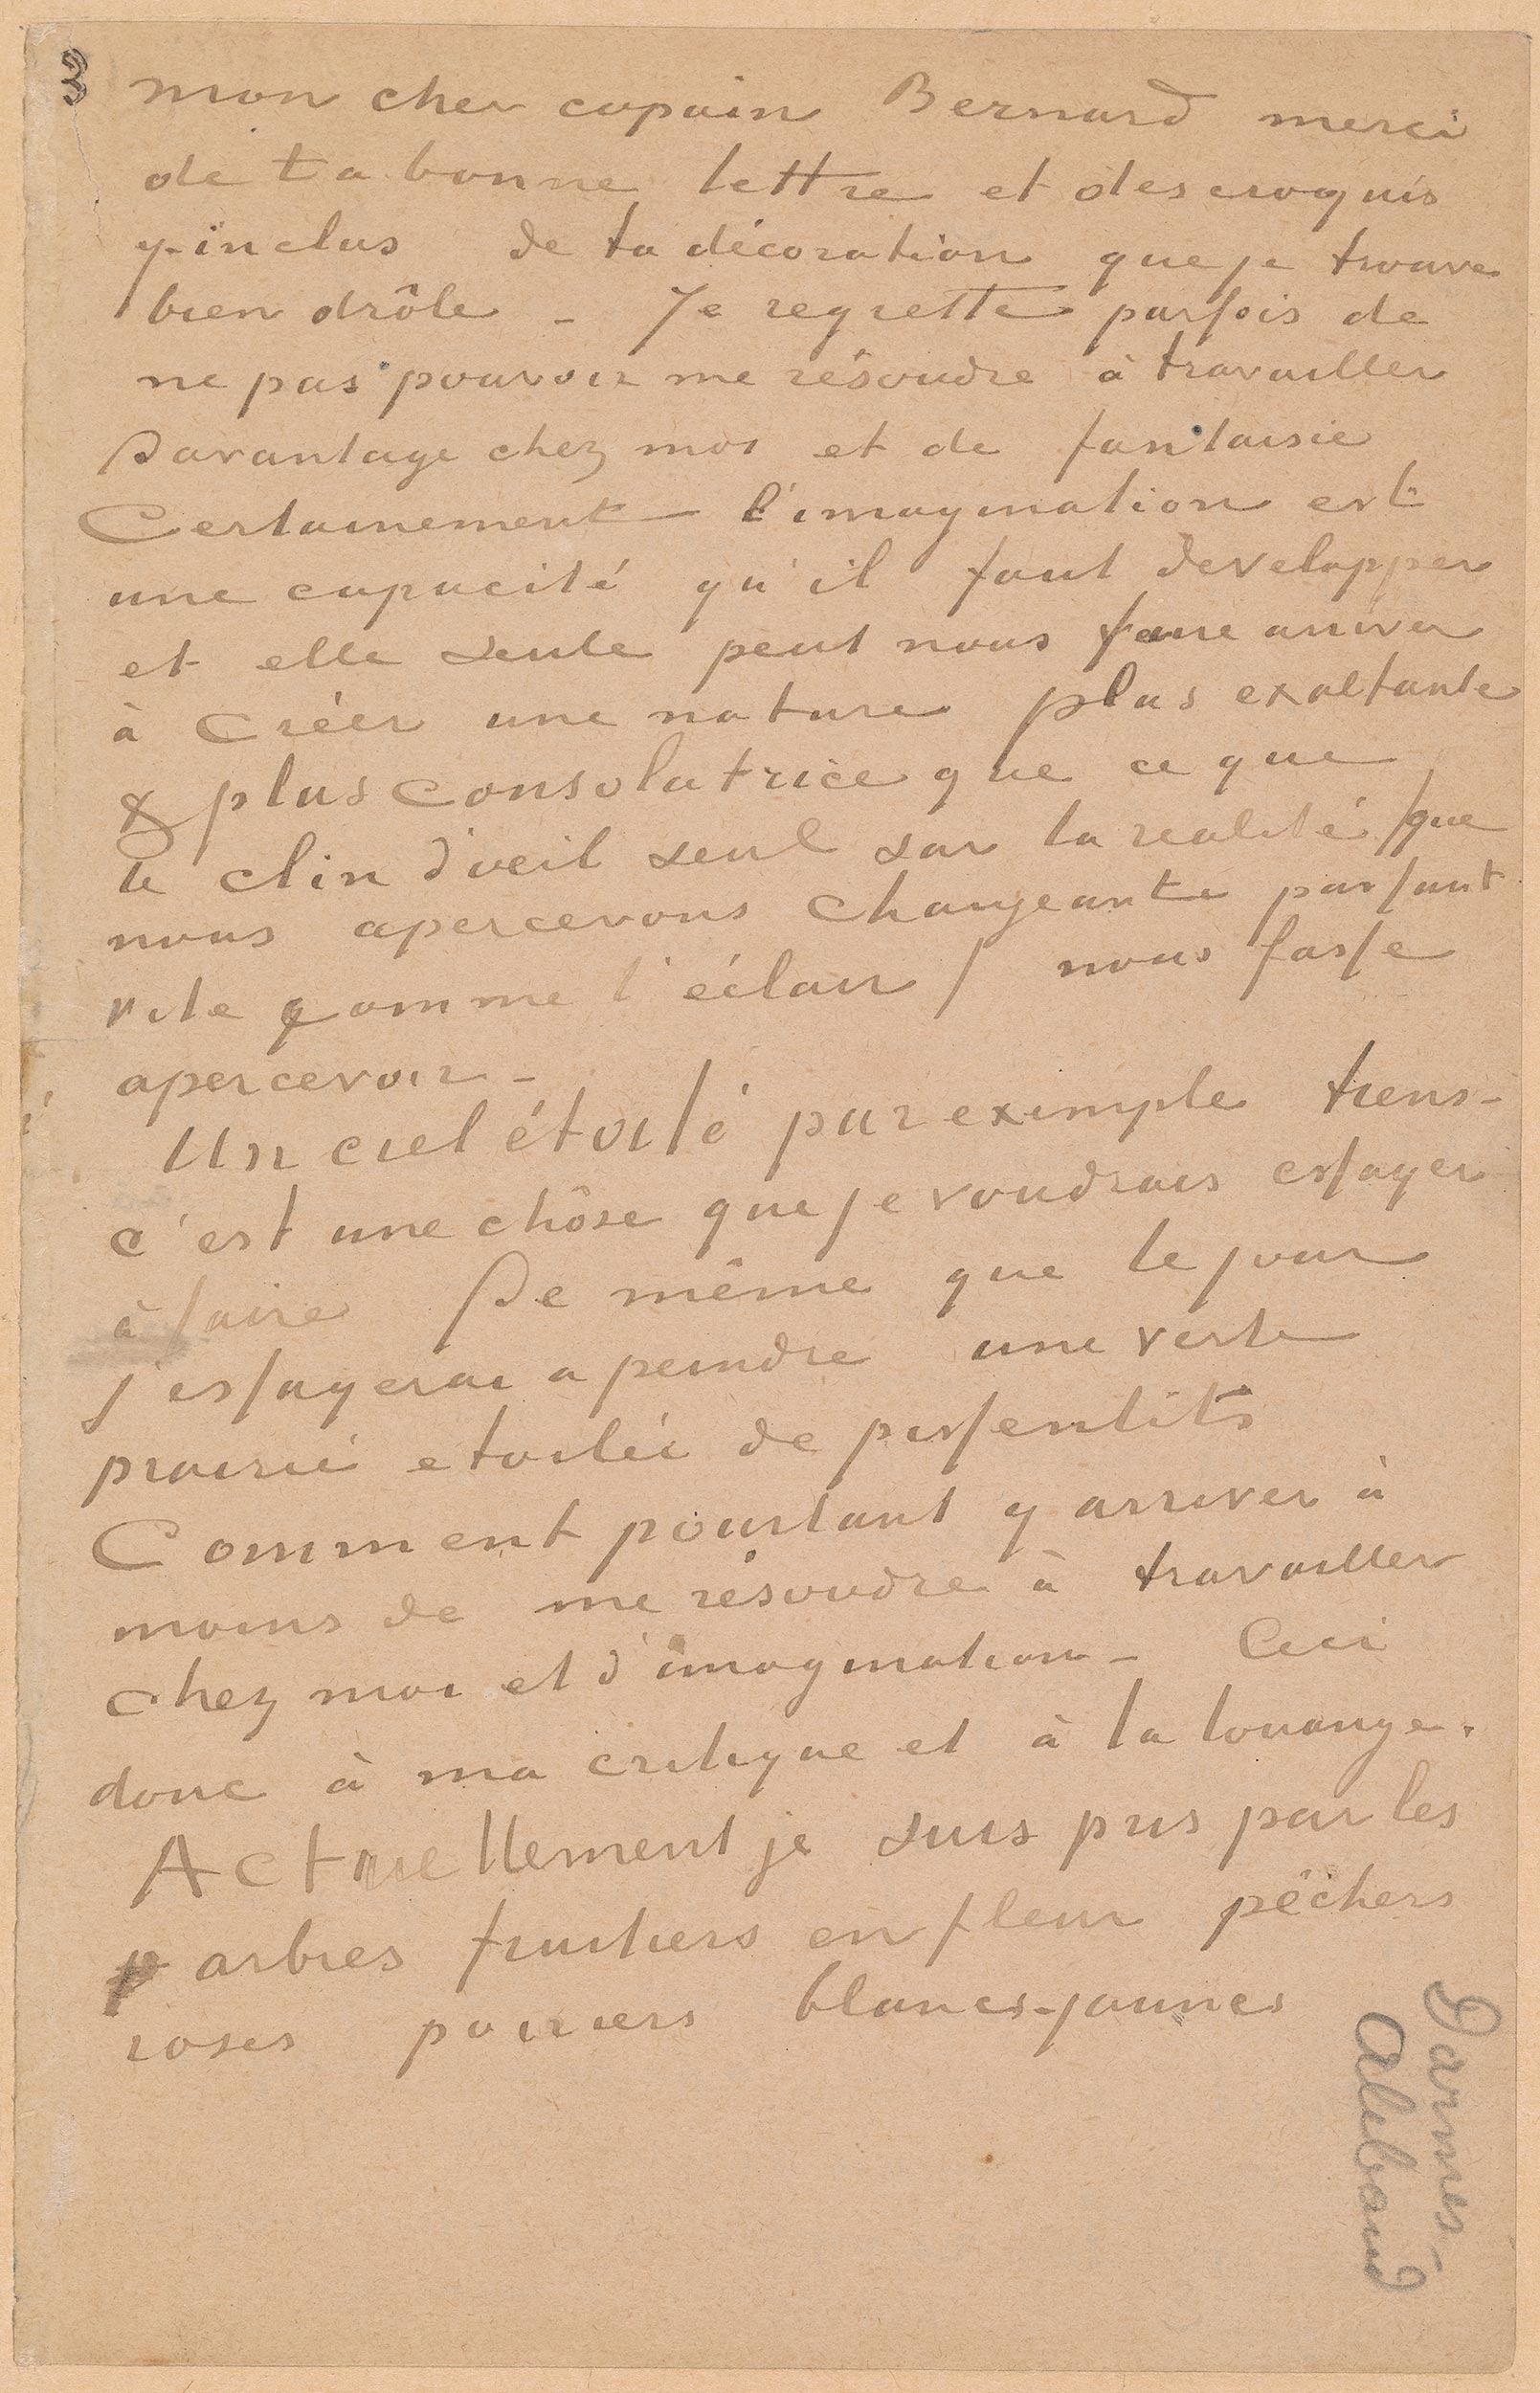 3 mon cher copain Bernard merci
de ta bonne lettre et des croquis
y-inclus de ta décoration que je trouve
bien drôle – Je regrette parfois de
ne pas pouvoir me résoudre à travailler
davantage chez moi et de fantaisie
Certainement – l'imagination est
une capacité qu'il faut developper
et elle seule peut nous faire arriver
à créer une nature plus exaltante
& plus consolatrice que ce que
le clin d'oeil seul sur la realité /que
nous apercevons changeante passant
vite comme l'éclair/ nous fasse
apercevoir –
Un ciel étoilé par exemple tiens –
c'est une chôse que je voudrais essayer
à faire De même que le jour
j'essayerai a peindre une verte
prairie etoilée de pissenlits
Comment pourtant y arriver à
moins de me résoudre à travailler
chez moi et d'imagination – Ceci
donc à ma critique et à la louange.
Actuellement je suis pris par les
arbres fruitiers en fleur pêchers
roses poiriers blancs-jaunes